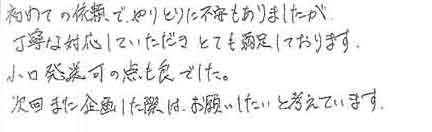 初めての依頼で、やりとりに不安もありましたが
丁寧な対応していただきとても満足しております。
小口発送可の点も良でした。
次回また企画した際は、お願いしたいと考えています。